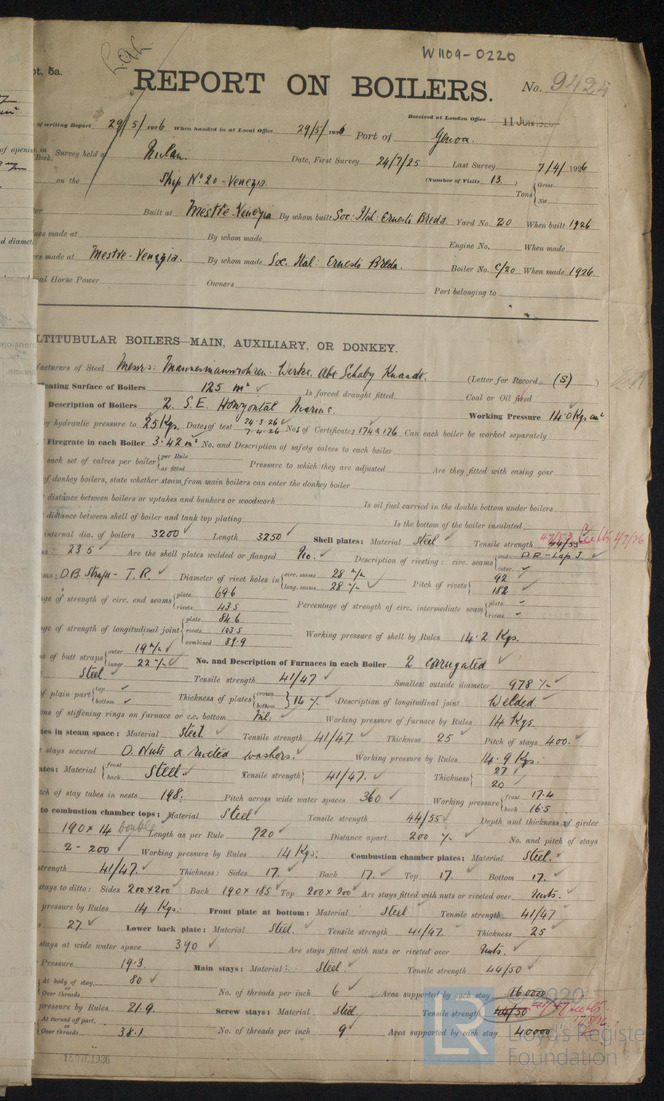 W1109-0220
pt. 5a.
REPORT ON BOILERS.
No. 9424
Received at London Office 11 JUN 1926
of writing Report 29/5/1926 When handed in at Local Office 29/5/1926 Port of Genoa.
Survey held a Milan. Date, First Survey 24/7/25 Last Survey 7/4/1926
on the Ship No 20 - Venezia. (Number of Visits 13.
Tons { Gross
Net
Built at Mestre-Venezia By whom built Soc. Ital. Ernesto Breda. Yard No. 20 When built 1926
es made at By whom made Engine No. When made
rs made at Mestre-Venezia. By whom made Soc. Ital: Ernesto Breda. Boiler No. C/20 When made 1926.
al Horse Power Owners Port belonging to
LTITUBULAR BOILERS—MAIN, AUXILIARY, OR DONKEY.
facturers of Steel Messrs: Mannesmannröhren-Werke (Letter for Record (S) )
eating Surface of Boilers 125 m² ✓ Is forced draught fitted Coal or Oil fired
Description of Boilers 2. S.E. Horizontal Marine. Working Pressure 14.0 Kgs cm²
by hydraulic pressure to 25 Kgs. Date of test 24.3.26 7.4.26 No. of Certificate 174 & 176 Can each boiler be worked separately
Firegrate in each Boiler 3.42 m² No. and Description of safety valves to each boiler
each set of valves per boiler { per Rule as fitted Pressure to which they are adjusted Are they fitted with easing gear
of donkey boilers, state whether steam from main boilers can enter the donkey boiler
distance between boilers or uptakes and bunkers or woodwork Is oil fuel carried in the double bottom under boilers
distance between shell of boiler and tank top plating Is the bottom of the boiler insulated
nternal dia. of boilers 3200 Length 3250 Shell plates: Material Steel Tensile strength 44/55
23.5 Are the shell plates welded or flanged. No. Description of riveting: circ. seams { end D.R-Lap J. ✓
inter. ✓
D.B. Straps - T.R. Diameter of rivet holes in { circ. seams 28 m/m long. seams 28 m/m Pitch of rivets { 92 182 ✓
ge of strength of circ. end seams { plate 69.6 rivets 43.5 Percentage of strength of circ. intermediate seam { plate ✓ rivets ✓
ge of strength of longitudinal joint { plate 84.6 rivets 103.5 combined 89.9 Working pressure of shell by Rules 14.2 Kgs.
of butt straps { outer 19 m/m inner 22 m/m No. and Description of Furnaces in each Boiler 2 corrugated ✓
Steel Tensile strength 41/47 Smallest outside diameter 978
of plain part { top ✓ bottom ✓ Thickness of plates { crown bottom } 14 Description of longitudinal joint Welded.
ns of stiffening rings on furnace or c.c. bottom Nil. Working pressure of furnace by Rules 14 Kgs.
tes in steam space: Material Steel Tensile strength 41/47 Thickness 25 Pitch of stays 400.
stays secured D. Nuts & riveted washers. Working pressure by Rules 14.9 Kgs.
ates: Material { front back Steel. Tensile strength 41/47. Thickness { 27 20
tch of stay tubes in nests 198. Pitch across wide water spaces 360 Working pressure { front 17.4 back 16.5
to combustion chamber tops: Material Steel Tensile strength 44/55 Depth and thickness of girder
190 x 14 double Length as per Rule 720 Distance apart 200 No. and pitch of stays
2 - 200 Working pressure by Rules 14 Kgs: Combustion chamber plates: Material Steel.
strength 41/47. Thickness: Sides 17. Back 17. Top 17. Bottom 17.
stays to ditto: Sides 200 x 200 Back 190 x 185 Top 200 x 200 Are stays fitted with nuts or riveted over Nuts.
pressure by Rules 14 Kgs. Front plate at bottom: Material Steel Tensile strength 41/47
27 Lower back plate: Material Steel. Tensile strength 41/47. Thickness 25
stays at wide water space 390 Are stays fitted with nuts or riveted over Nuts.
Pressure 19.3 Main stays: Material Steel Tensile strength 44/50
At body of stay, or Over threads 80 No. of threads per inch 6 Area supported by each stay 160000
pressure by Rules 21.9 Screw stays: Material Steel Tensile strength 44/50
At turned off part, or Over threads 38.1 No. of threads per inch 9 Area supported by each stay 40000
© 2020
Lloyd's Register
Foundation